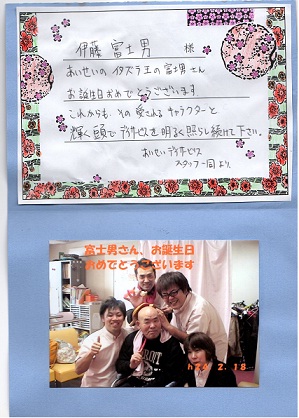 伊藤 富士男 様
あいせいのイタズラ王の富士男さん
お誕生日おめでとうございます
これからも、その愛されるキャラクターと
輝く頭でデイサービスを明るく照らし続けて下さい。
あいせいデイサービス
スタッフ一同より。
富士男さん、お誕生日
おめでとうございます
2.18